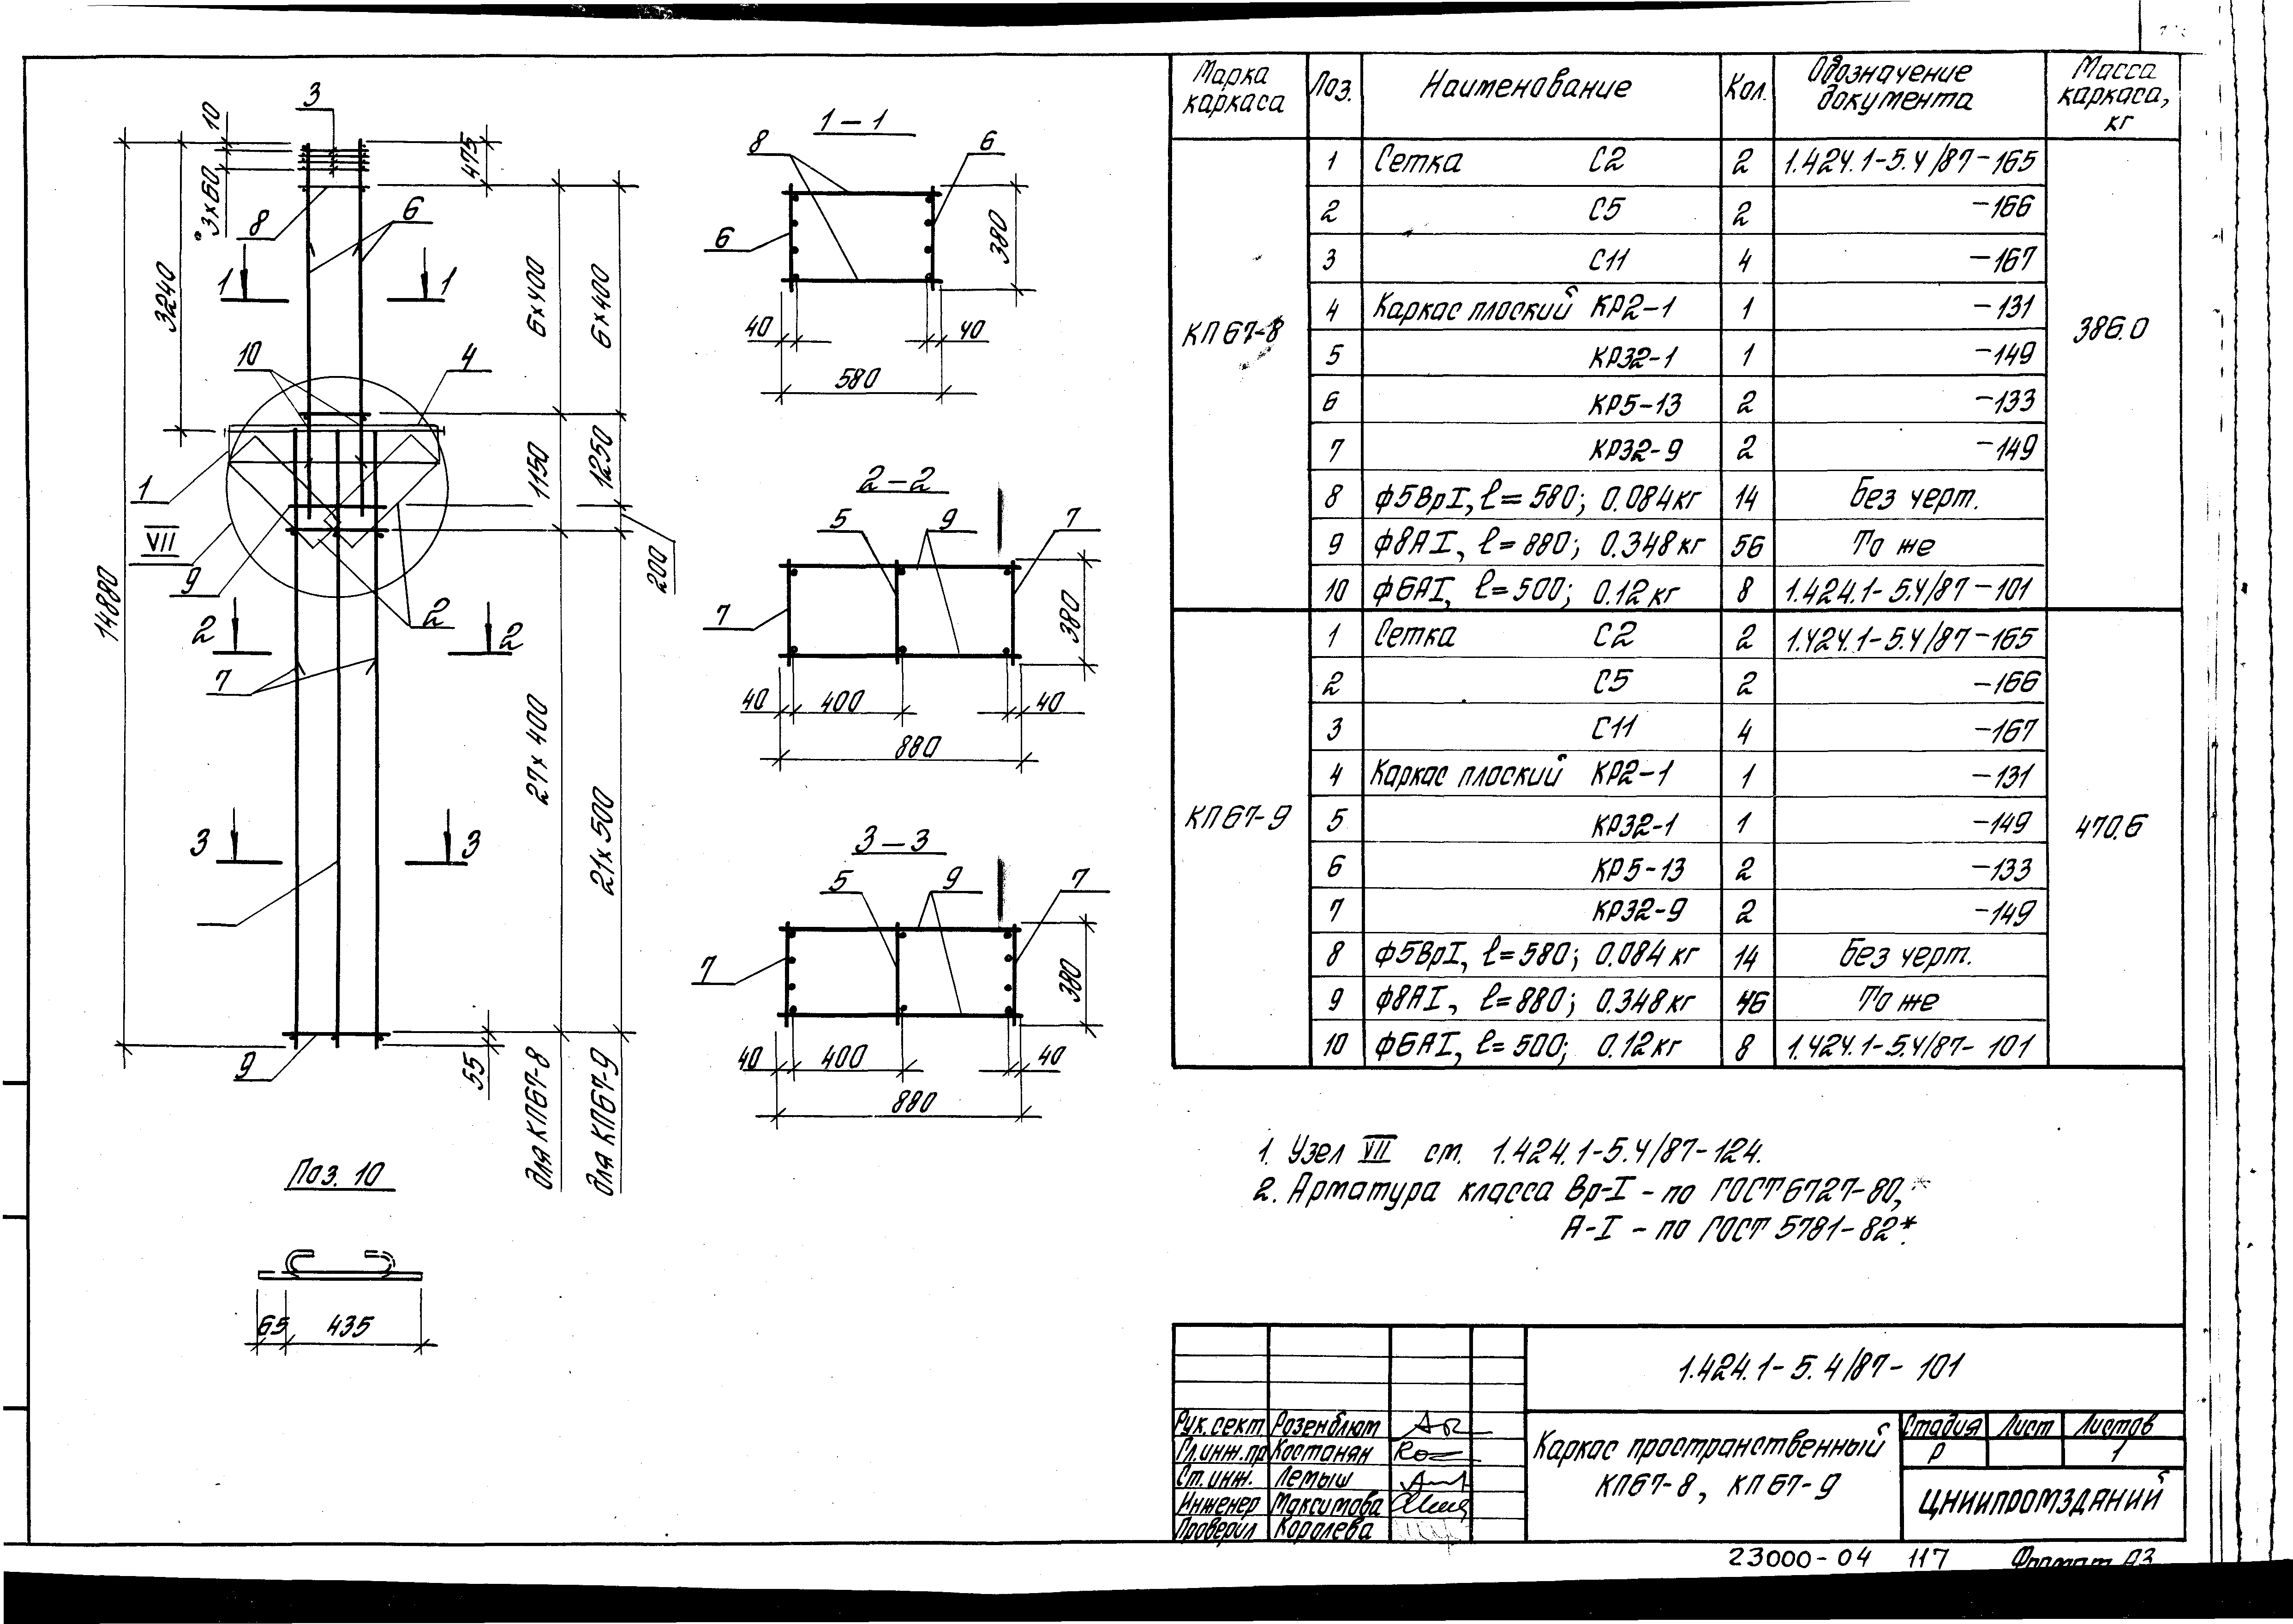 3
10
3×60
475
8
6
1
1
3240
6×400
6×400
10
4
1
1150
1250
VII
9
2
200
14880
2
2
7
27×400
21×500
3
3
9
55
для КП67-8
для КП67-9
Поз. 10
65 435
1–1
8
6
6
380
40
40
580
2–2
5
9
7
7
380
40 400 40
880
3–3
5
9
7
7
380
40 400 40
880
Марка каркаса Поз. Наименование Кол. Обозначение документа Масса каркаса, кг
КП67-8
386.0
1 Сетка С2 2 1.424.1-5.4/87-165
2 С5 2 -166
3 С11 4 -167
4 Каркас плоский КР2-1 1 -131
5 КР32-1 1 -149
6 КР5-13 2 -133
7 КР32-9 2 -149
8 ф5ВрI, ℓ=580; 0.084кг 14 Без черт.
9 ф8АI, ℓ=880; 0.348кг 56 То же
10 ф6АI, ℓ=500; 0.12кг 8 1.424.1-5.4/87-101
КП67-9
470.6
1 Сетка С2 2 1.424.1-5.4/87-165
2 С5 2 -166
3 С11 4 -167
4 Каркас плоский КР2-1 1 -131
5 КР32-1 1 -149
6 КР5-13 2 -133
7 КР32-9 2 -149
8 ф5ВрI, ℓ=580; 0.084кг 14 Без черт.
9 ф8АI, ℓ=880; 0.348кг 46 То же
10 ф6АI, ℓ=500; 0.12кг 8 1.424.1-5.4/87-101
1. Узел VII см. 1.424.1-5.4/87-124.
2. Арматура класса Вр-I - по ГОСТ 6727-80,*
А-I - по ГОСТ 5781-82*.
1.424.1-5.4/87-101
Рук. сект. Розенблюм
Гл.инж.пр Костанян
Ст.инж. Лемыш
Инженер Максимова
Проверил Королева
Каркас пространственный
КП67-8, КП67-9
Стадия Лист Листов
Р 1
ЦНИИПРОМЗДАНИЙ
23000-04 117 Формат А3